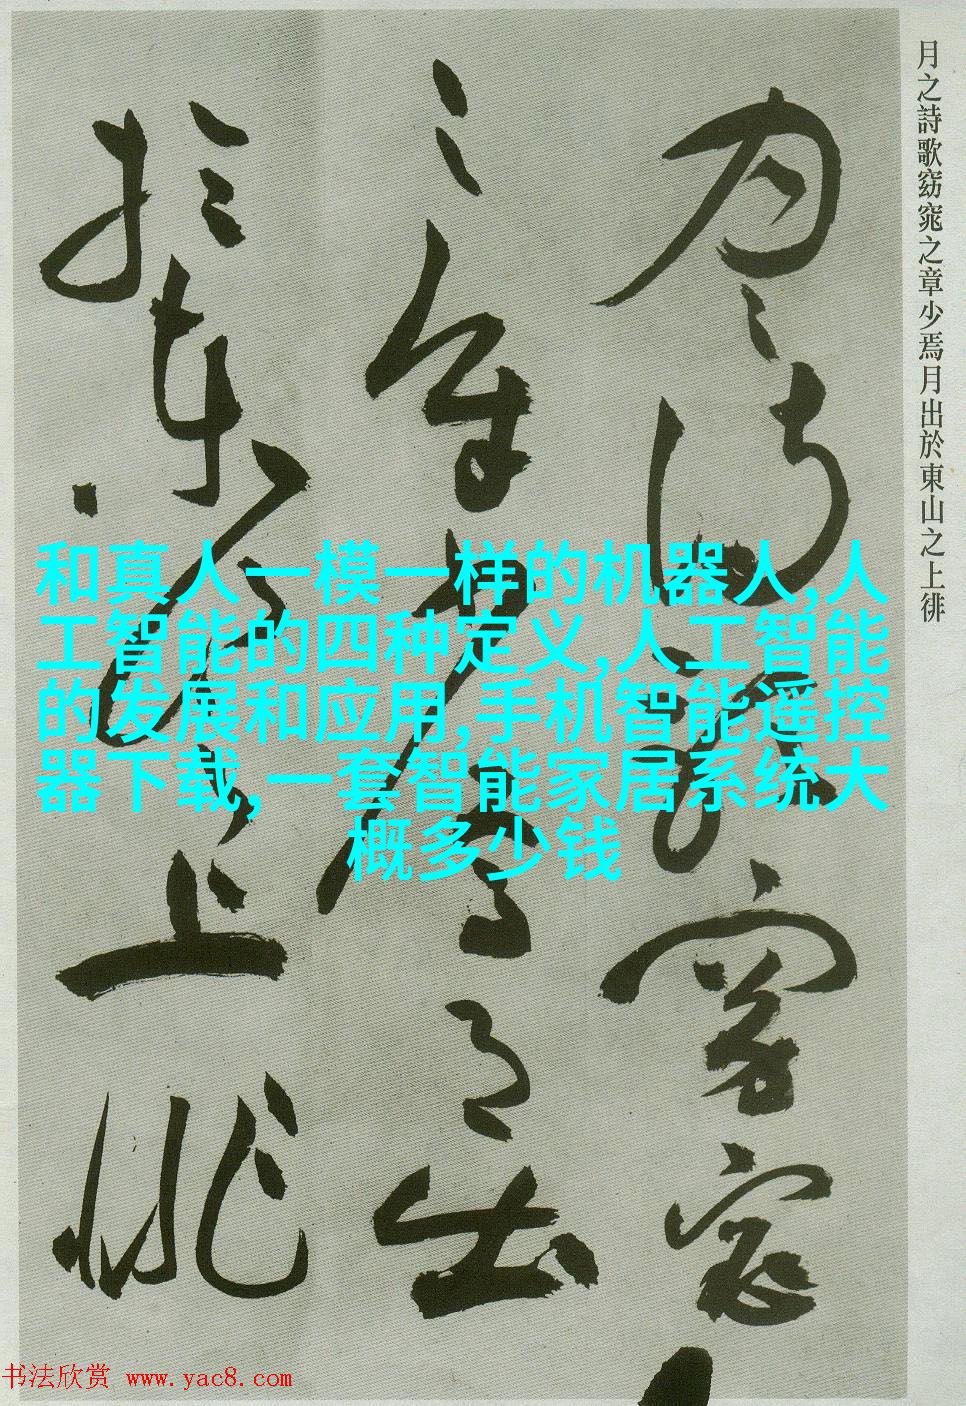 月之詩歌窈窕之章少焉月出於東山之上徘
月之詩歌窈窕
之章少焉月出
於東山之上徘
和真人一模一样的机器人,人
工智能的四种定义,人工智能
的发展和应用,手机智能遥控
器下载,一套智能家居系统大
概多少钱
书法欣赏 www.yac8.com